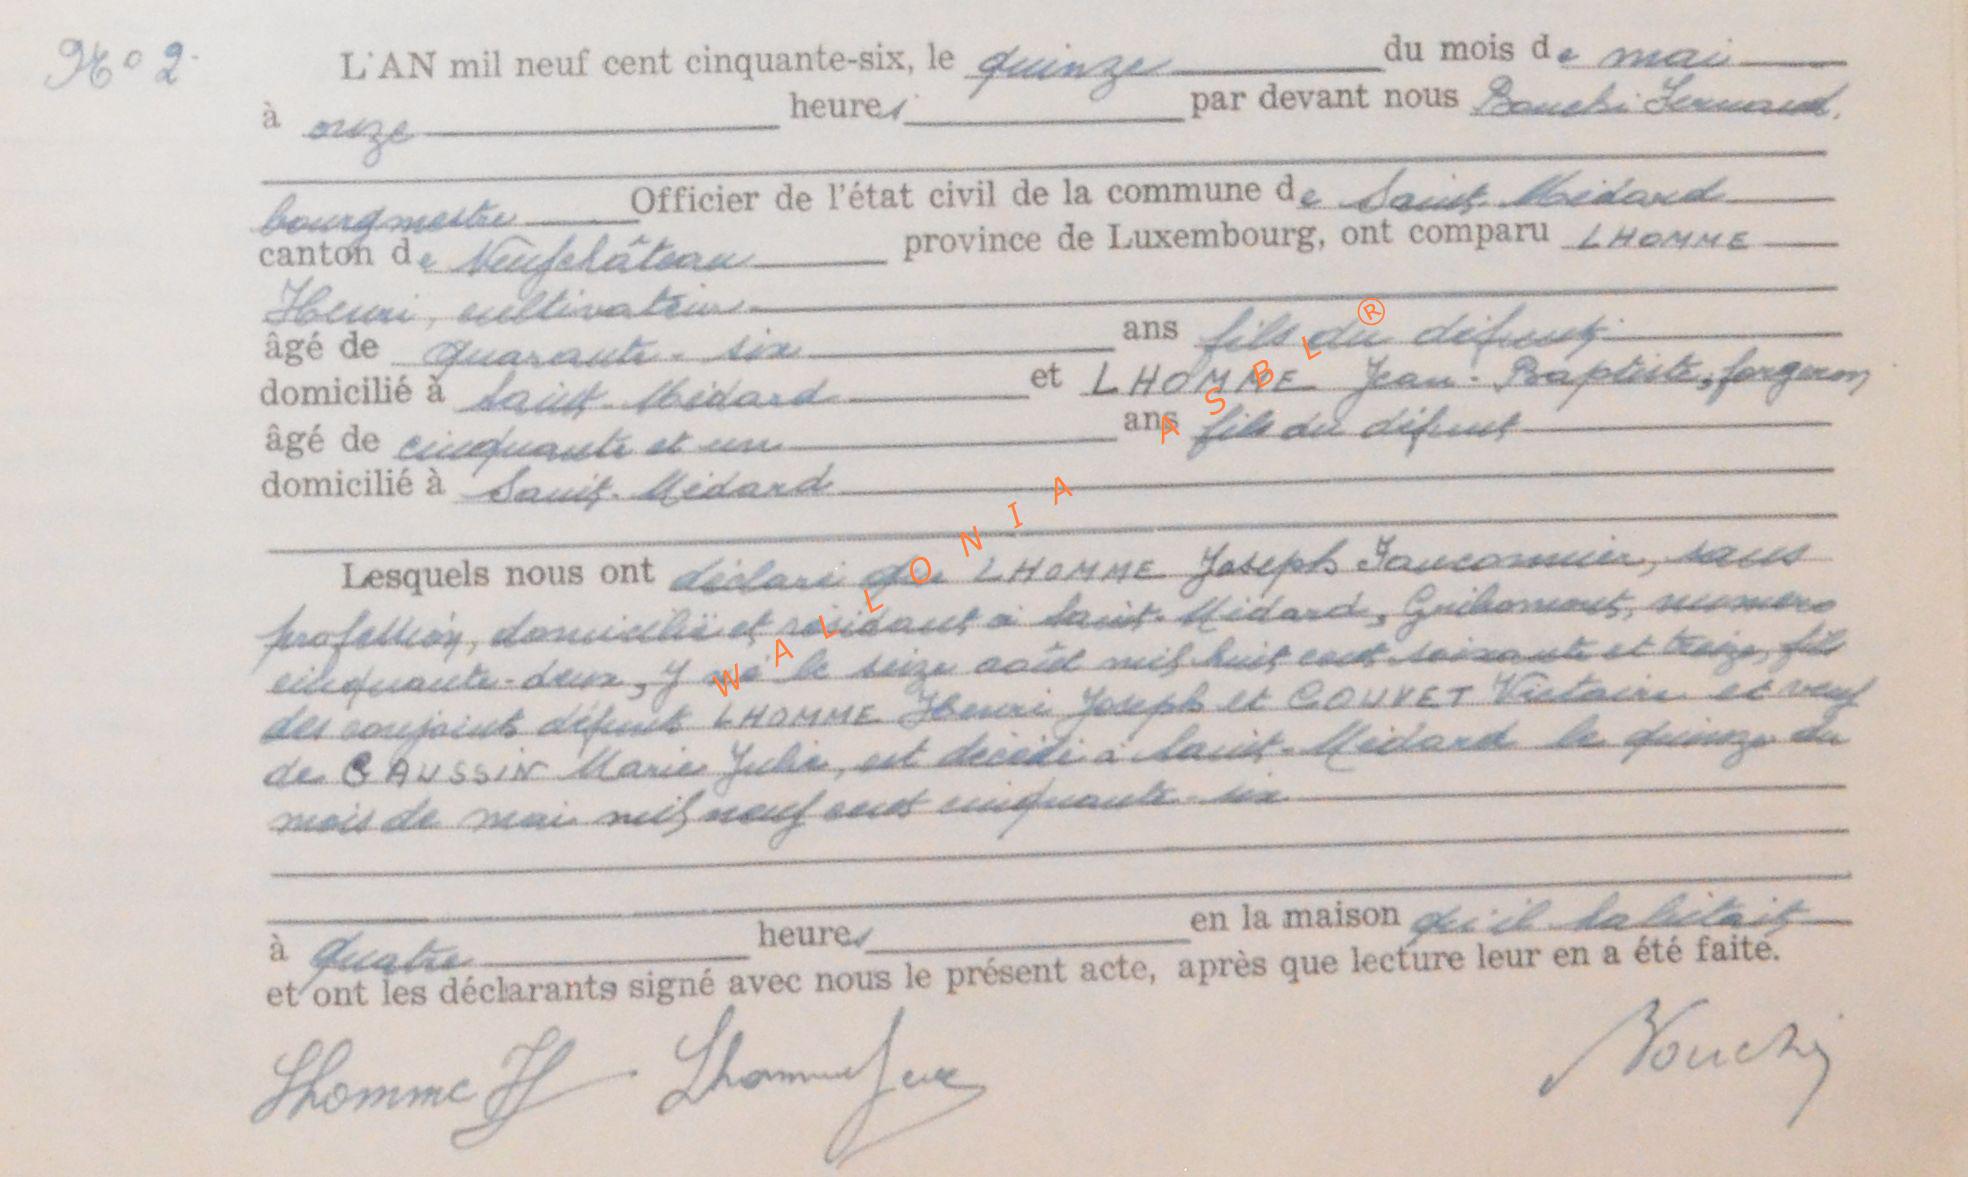 N° 2.
L'AN mil neuf cent cinquante-six, le quinze du mois de mai
à onze heures par devant nous Bouchi Fernand,
bourgmestre Officier de l'état civil de la commune de Saint-Médard
canton de Neufchâteau province de Luxembourg, ont comparu LHOMME
Henri, cultivateur
âgé de quarante-six ans fils du défunt
domicilié à Saint-Médard et LHOMME Jean-Baptiste, forgeron
âgé de cinquante et un ans fils du défunt
domicilié à Saint-Médard
Lesquels nous ont déclaré que LHOMME Joseph Fauconnier, sans
profession, domicilié et résidant à Saint-Médard, Gribomont, numéro
cinquante-deux, y né le seize août mil huit cent soixante et treize, fils
des conjoints défunts LHOMME Henri Joseph et GOUVET Victoire et veuf
de GAUSSIN Marie Julie, est décédé à Saint-Médard le quinze du
mois de mai mil neuf cent cinquante-six
à quatre heures en la maison qu'il habitait
et ont les déclarants signé avec nous le présent acte, après que lecture leur en a été faite.
Lhomme H Lhomme Jean Bouchi
WALLONIA ASBL ®